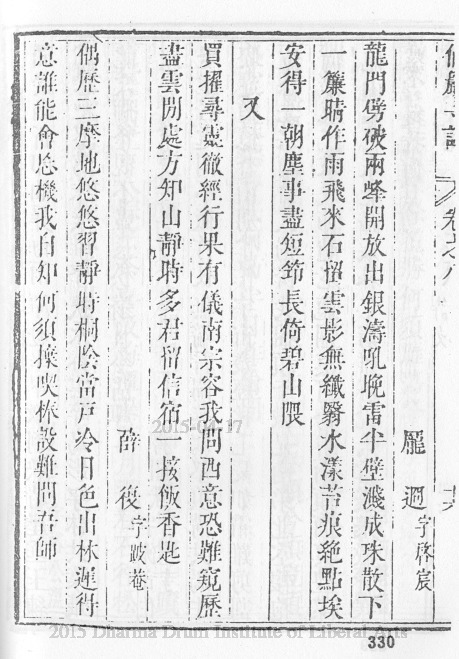 龐 迥 字啓宸
龍門劈破兩峰開放出銀濤吼晚雷半壁濺成珠散下
一簾晴作雨飛來石招雲影無纖翳水漾苔痕絕點埃
安得一朝塵事盡短筇長倚碧山隈
又
買擢尋靈徹經行果有儀南宗容我問西意恐難窺歷
盡雲閒處方知山靜時多君留信宿一接飯香匙
薛 復 字跛菴
偶歷三摩地悠悠習靜時桐陰當戶冷日色出林遲得
意誰能會忘機我自知何須操喫棒設難問吾師
330
2015-04-17
2015 Dharma Drum Institute of Liberal Arts